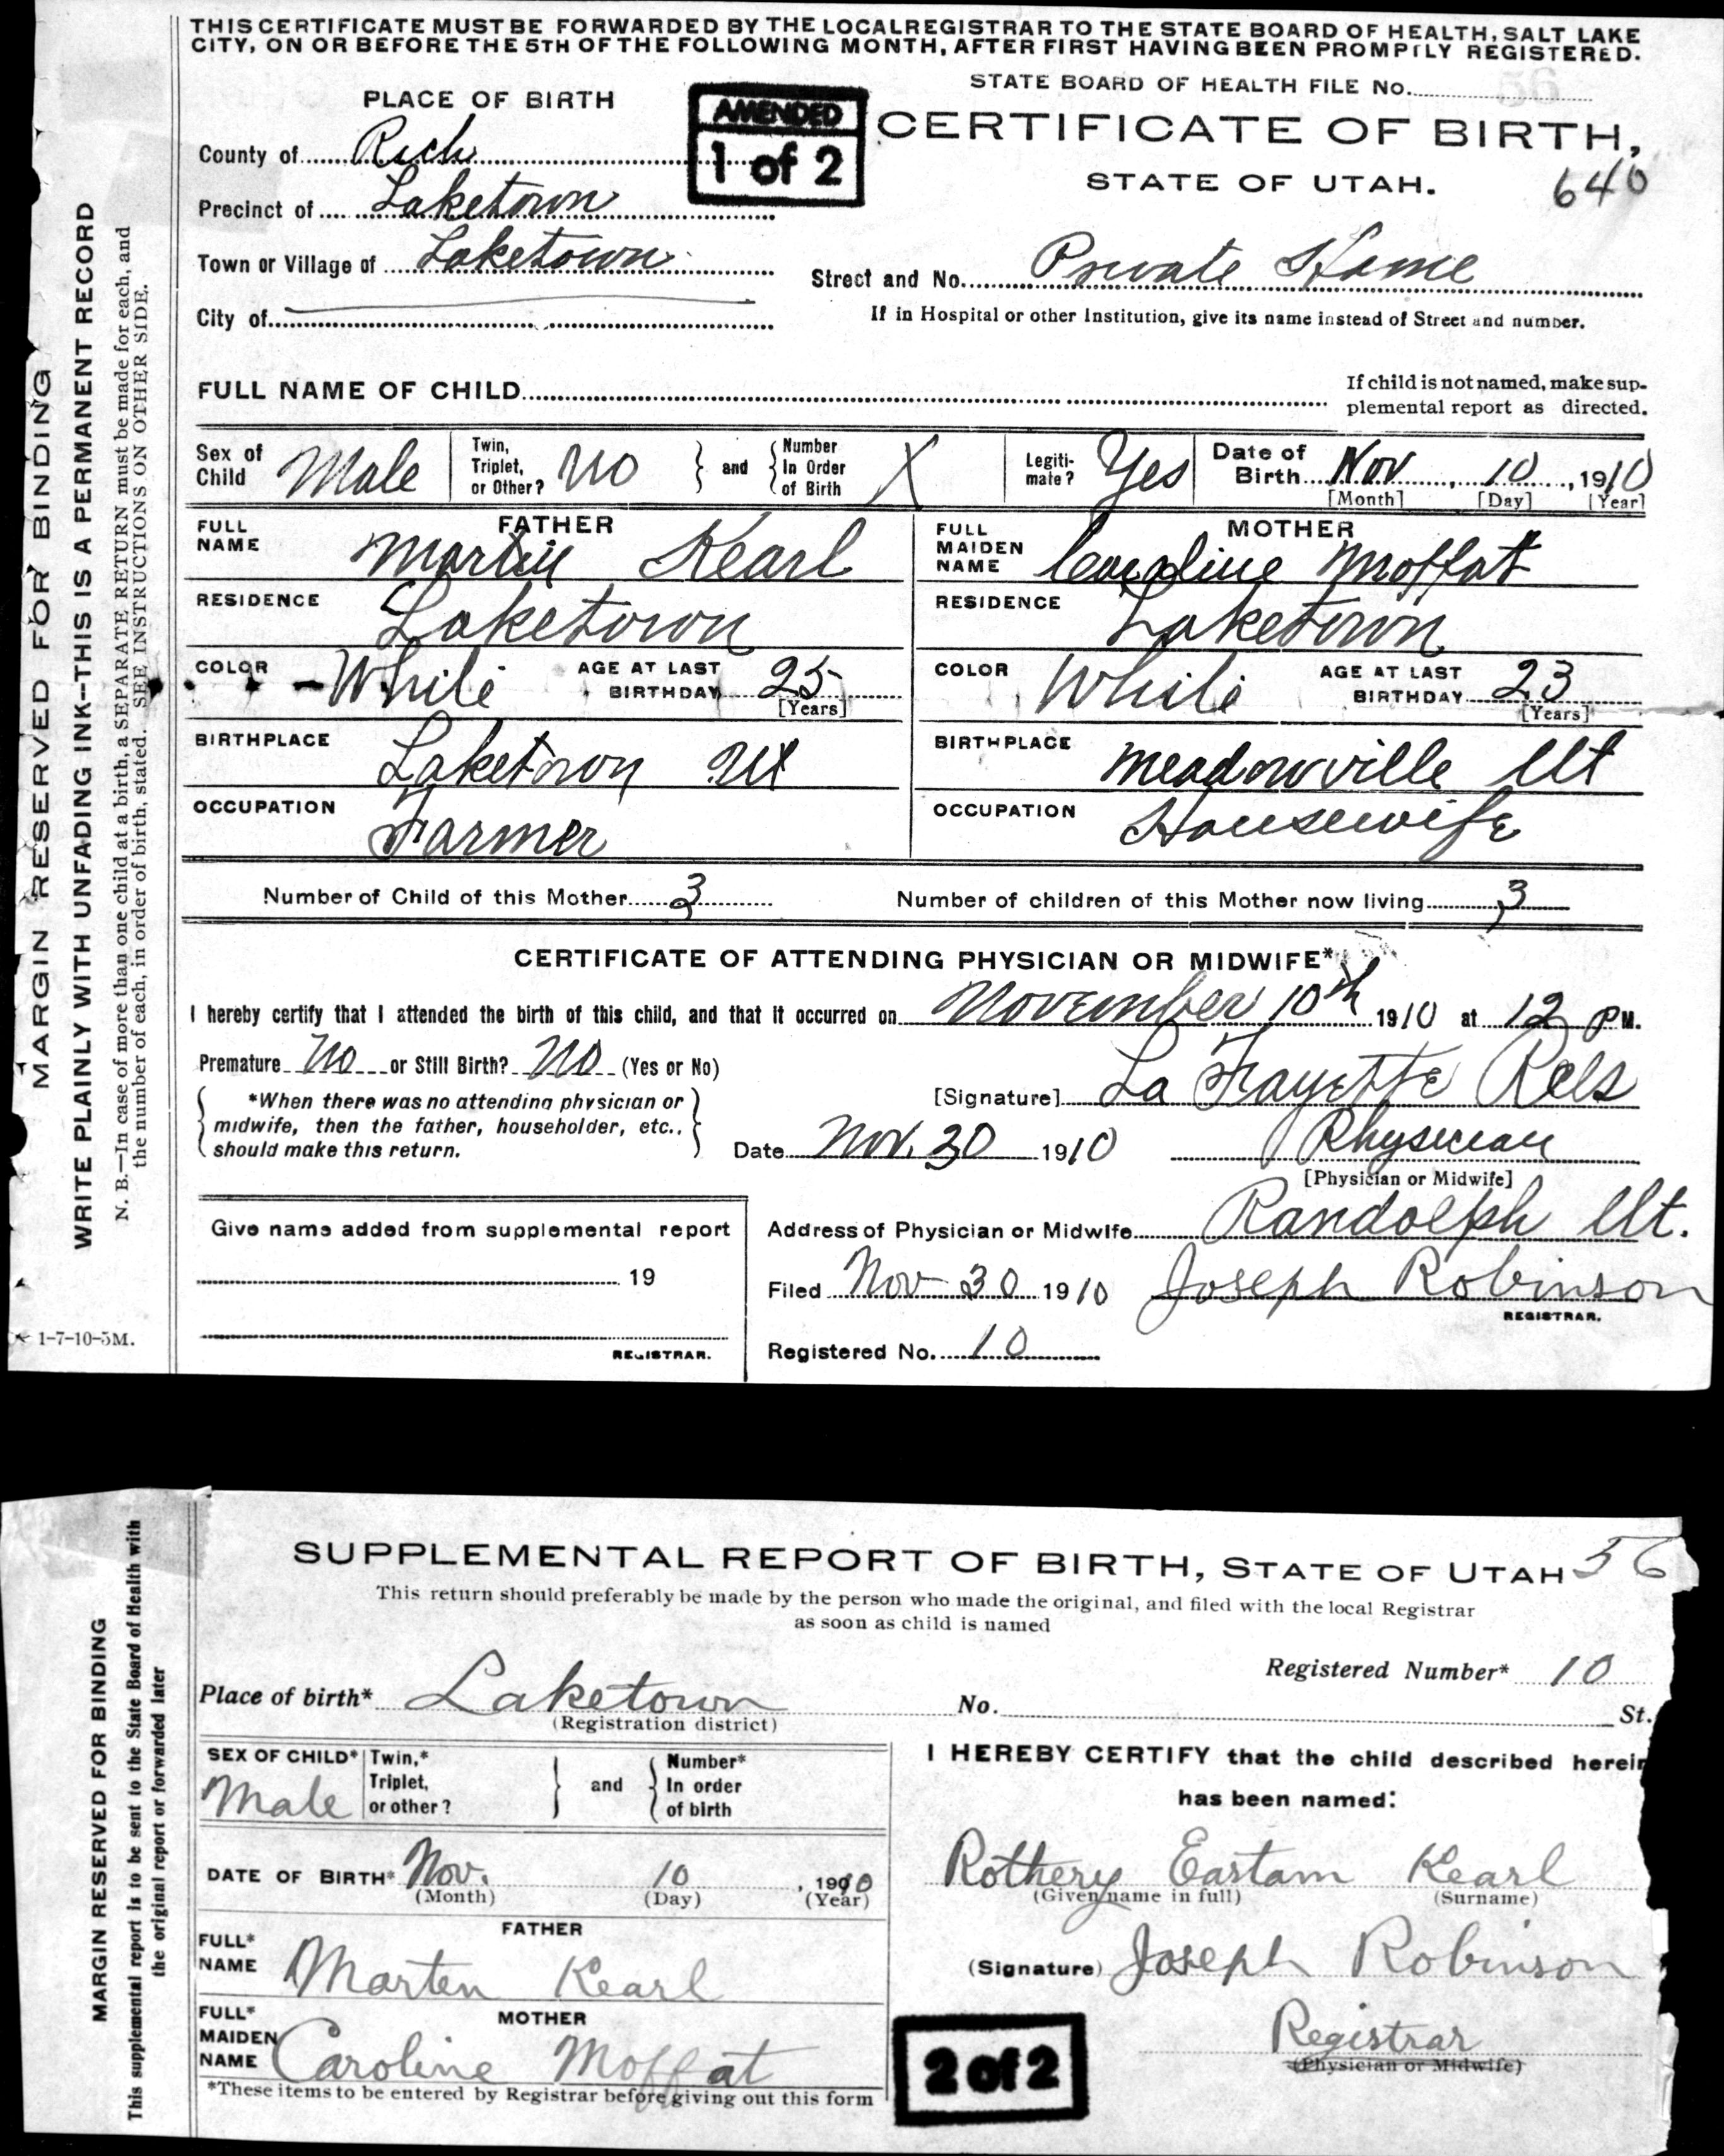 THIS CERTIFICATE MUST BE FORWARDED BY THE LOCAL REGISTRAR TO THE STATE BOARD OF HEALTH, SALT LAKE
CITY, ON OR BEFORE THE 5TH OF THE FOLLOWING MONTH, AFTER FIRST HAVING BEEN PROMPTLY REGISTERED.
STATE BOARD OF HEALTH FILE No.
PLACE OF BIRTH
AMENDED
1 of 2
CERTIFICATE OF BIRTH,
STATE OF UTAH.
640
County of Rich
Precinct of Laketown
Town or Village of Laketown
Street and No. Private Home
City of
If in Hospital or other Institution, give its name instead of Street and number.
FULL NAME OF CHILD
If child is not named, make sup-
plemental report as directed.
Sex of Child Male
Twin, Triplet, or Other? No
and
Number In Order of Birth X
Legiti-mate? Yes
Date of Birth Nov 10, 1910
[Month] [Day] [Year]
FATHER
FULL NAME Martin Kearl
RESIDENCE Laketown
COLOR White AGE AT LAST BIRTHDAY 25
[Years]
BIRTHPLACE Laketown Ut
OCCUPATION Farmer
MOTHER
FULL MAIDEN NAME Caroline Moffat
RESIDENCE Laketown
COLOR White AGE AT LAST BIRTHDAY 23
[Years]
BIRTHPLACE Meadowville Ut
OCCUPATION Housewife
Number of Child of this Mother 3 Number of children of this Mother now living 3
CERTIFICATE OF ATTENDING PHYSICIAN OR MIDWIFE*
I hereby certify that I attended the birth of this child, and that it occurred on November 10th 1910 at 12 P M.
Premature No or Still Birth? No (Yes or No)
*When there was no attending physician or
midwife, then the father, householder, etc.,
should make this return.
[Signature] La Fayette Rels
Date Nov. 30 1910 Physician
[Physician or Midwife]
Give name added from supplemental report
19
REGISTRAR.
Address of Physician or Midwife Randolph Ut.
Filed Nov 30 1910 Joseph Robinson
REGISTRAR.
Registered No. 10
MARGIN RESERVED FOR BINDING
WRITE PLAINLY WITH UNFADING INK--THIS IS A PERMANENT RECORD
N. B.—In case of more than one child at a birth, a SEPARATE RETURN must be made for each, and
the number of each, in order of birth, stated. SEE INSTRUCTIONS ON OTHER SIDE.
1-7-10-5M.
SUPPLEMENTAL REPORT OF BIRTH, STATE OF UTAH 56
This return should preferably be made by the person who made the original, and filed with the local Registrar
as soon as child is named
Registered Number* 10
Place of birth* Laketown No. St.
(Registration district)
SEX OF CHILD* Male
Twin,* Triplet, or other?
and
Number* In order of birth
DATE OF BIRTH* Nov. 10, 1910
(Month) (Day) (Year)
FATHER
FULL* NAME Marten Kearl
MOTHER
FULL* MAIDEN NAME Caroline Moffat
*These items to be entered by Registrar before giving out this form
I HEREBY CERTIFY that the child described herein
has been named:
Rothery Eastam Kearl
(Given name in full) (Surname)
(Signature) Joseph Robinson
Registrar
(Physician or Midwife)
2 of 2
MARGIN RESERVED FOR BINDING
This supplemental report is to be sent to the State Board of Health with
the original report or forwarded later